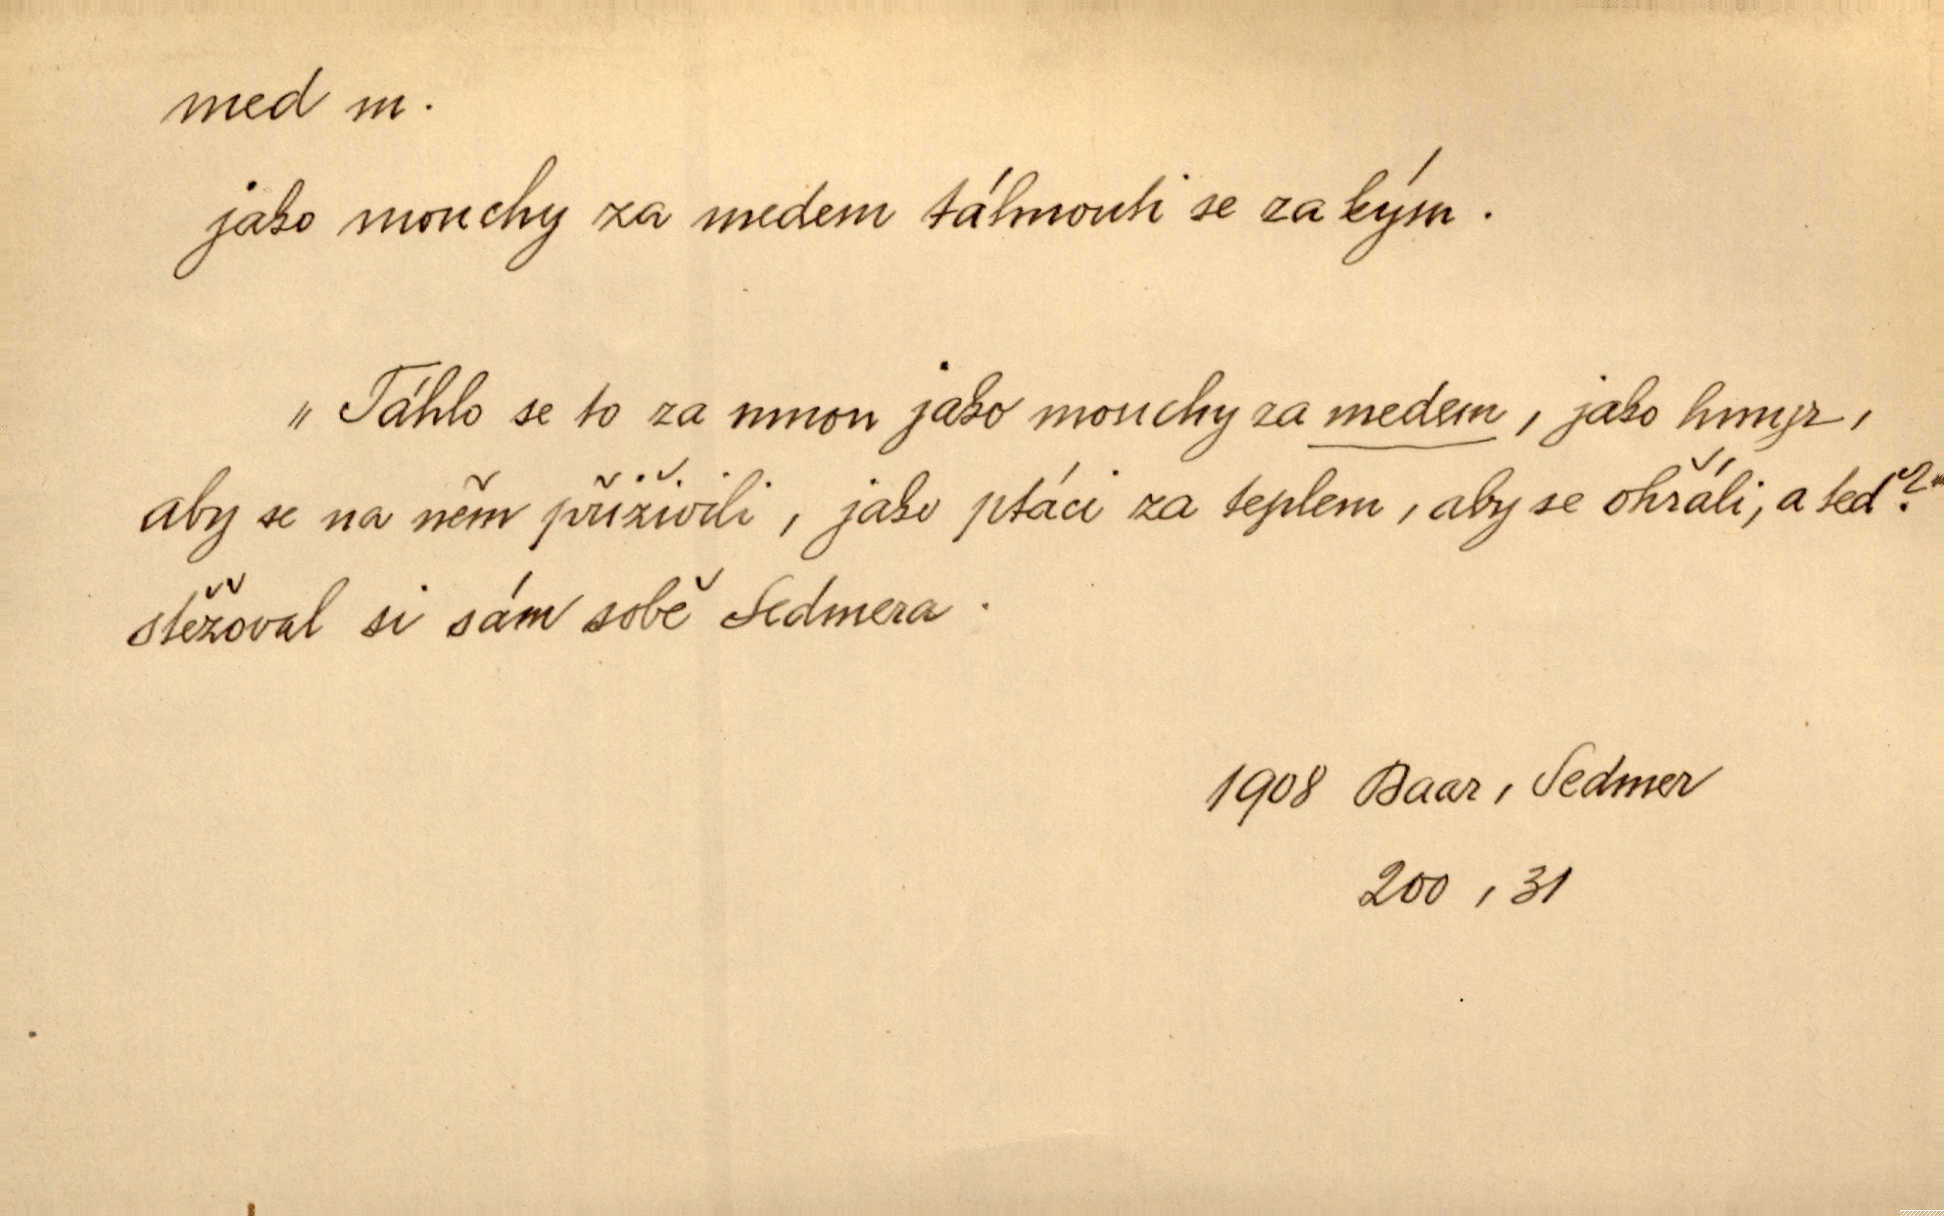 med m.
jako mouchy za medem táhnouti se za kým.
„Táhlo se to za mnou jako mouchy za medem, jako hmyz,
aby se na něm přiživili, jako ptáci za teplem, aby se ohřáli, a teď?"
stěžoval si sám sobě Sedmera.
1908 Baar, Sedmer
200, 31